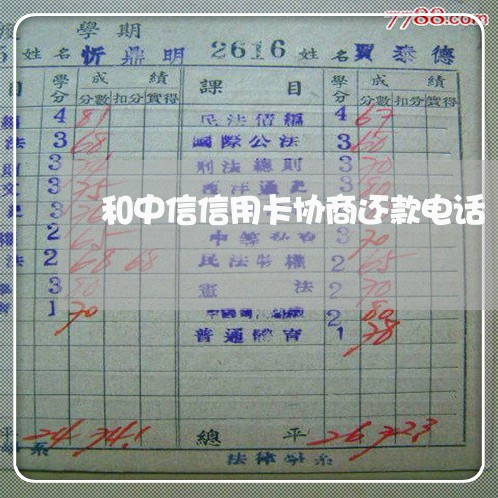 7788.com
學期
姓名 忻鼎明 2616 姓名 賈泰德
目 學分 成績 課目 學分 成績
分數 扣分 實得 分數 扣分 實得
4 81 民法債編 4 67
法 3 68 國際公法 3 60
3 刑法總則 3 70
文 3 75 西洋通史 3 80
和中信信用卡协商还款电话
2 65 3 70
法 2 68 68 民法物權 2 65
3 80 憲法 2 70
1 70 2 80
普通體育 1 78
平 24 74.1 總平 26 72.3
系 法律學系